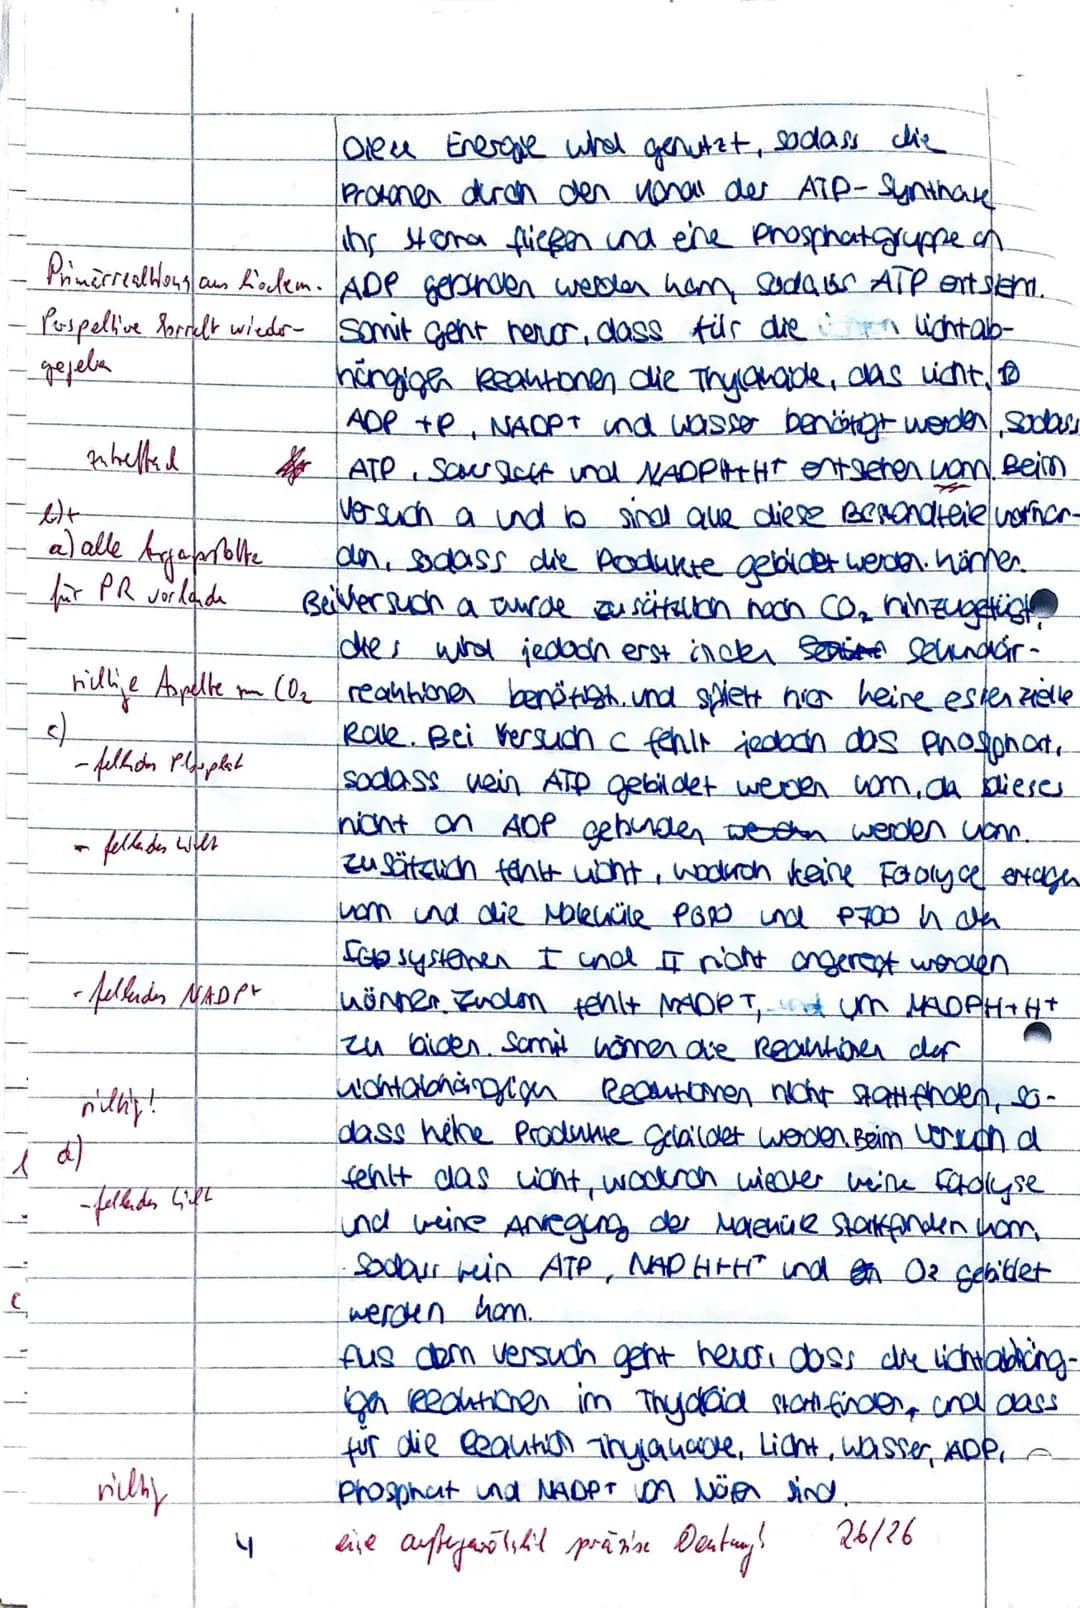 Diese Energie wird genutzt, sodass die
Protonen durch den Kanal der ATP-Synthase
ins Stroma fließen und eine Phosphatgruppe an
Primärreaktionen aus biochem. ADP gebunden werden kann, sodass ATP entsteht.
Perspektive korrekt wieder- Somit geht hervor, dass für die lichtab-
gegeben hängigen Reaktionen die Thylakoide, das Licht,
ADP +P, NADP+ und Wasser benötigt werden, sodass
zutreffend ATP, Sauerstoff und NADPH+H+ entstehen kann. Beim
b)+ Versuch a und b sind alle diese Bestandteile vorhan-
a) alle den, sodass die Produkte gebildet werden können.
für PR Bei Versuch a wurde zusätzlich noch CO2 hinzugefügt,
dies wird jedoch erst in den Sekundär-
richtige Aspekte zum CO2 reaktionen benötigt und spielt hier keine essenzielle
c) Rolle. Bei Versuch c fehlt jedoch das Phosphat,
- fehlendes Phosphat sodass kein ATP gebildet werden kann, da dieses
nicht an ADP gebunden werden kann.
- fehlendes Licht Zusätzlich fehlt Licht, wodurch keine Fotolyse erfolgen
kann und die Moleküle P680 und P700 in den
Fotosystemen I und II nicht angeregt werden
- fehlendes NADP+ können. Zudem fehlt NADP+, um NADPH+H+
zu bilden. Somit können die Reaktionen der
richtig! lichtabhängigen Reaktionen nicht stattfinden, so-
d) dass keine Produkte gebildet werden. Beim Versuch d
- fehlendes Licht fehlt das Licht, wodurch wieder keine Fotolyse
und keine Anregung der Moleküle stattfinden kann,
sodass kein ATP, NADPH+H+ und O2 gebildet
werden kann.
Aus dem Versuch geht hervor, dass die lichtabhäng-
igen Reaktionen im Thylakoid stattfinden, und dass
für die Reaktion Thylakoide, Licht, Wasser, ADP,
richtig Phosphat und NADP+ von Nöten sind.
4 eine außergewöhnlich präzise Deutung! 26/26